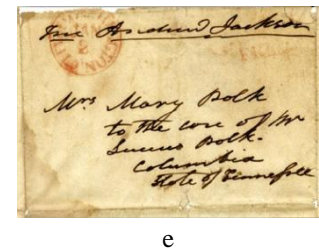 Free Andrew Jackson
Mrs Mary Polk
to the care of Mr
Lucius Polk.
Columbia
State of Tennessee
e